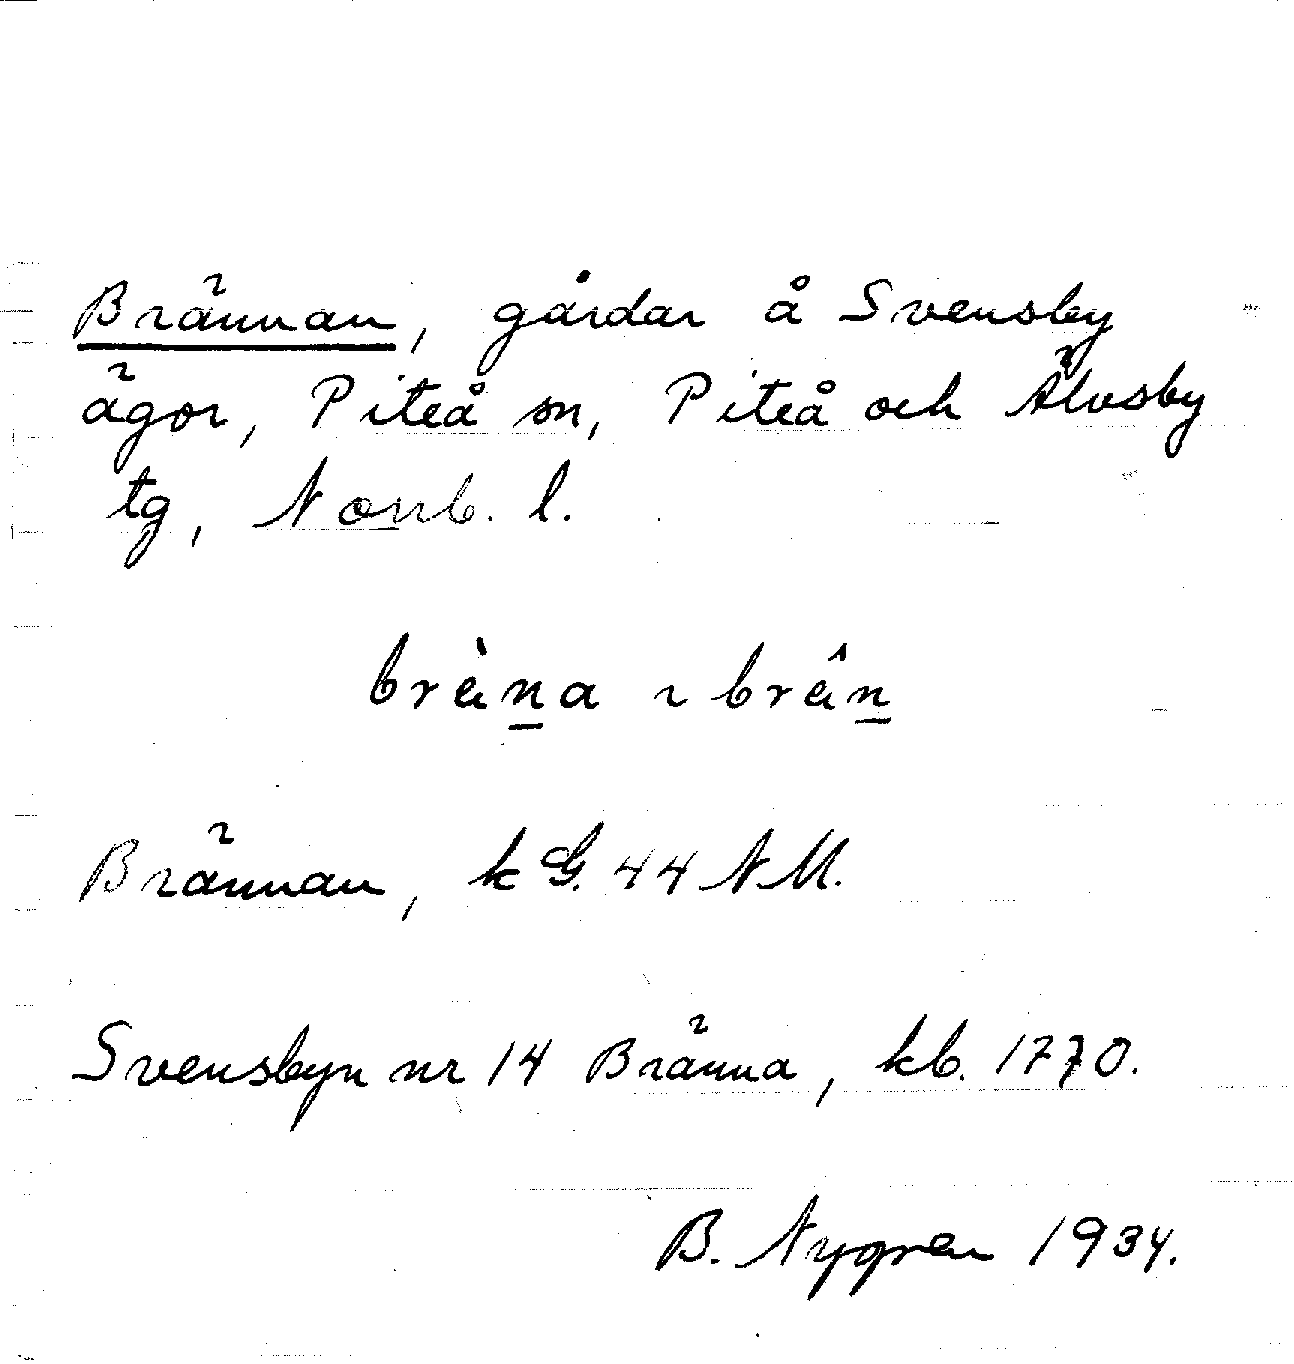 Brännan, gårdar å Svensby
ägor, Piteå sn, Piteå och Älvsby
tg, Norrb. l.
brèn̲a ~ brên̲
Brännan, kG. 44 NM.
Svensbyn nr 14 Bränna, kb. 1770.
B. Nygren 1934.